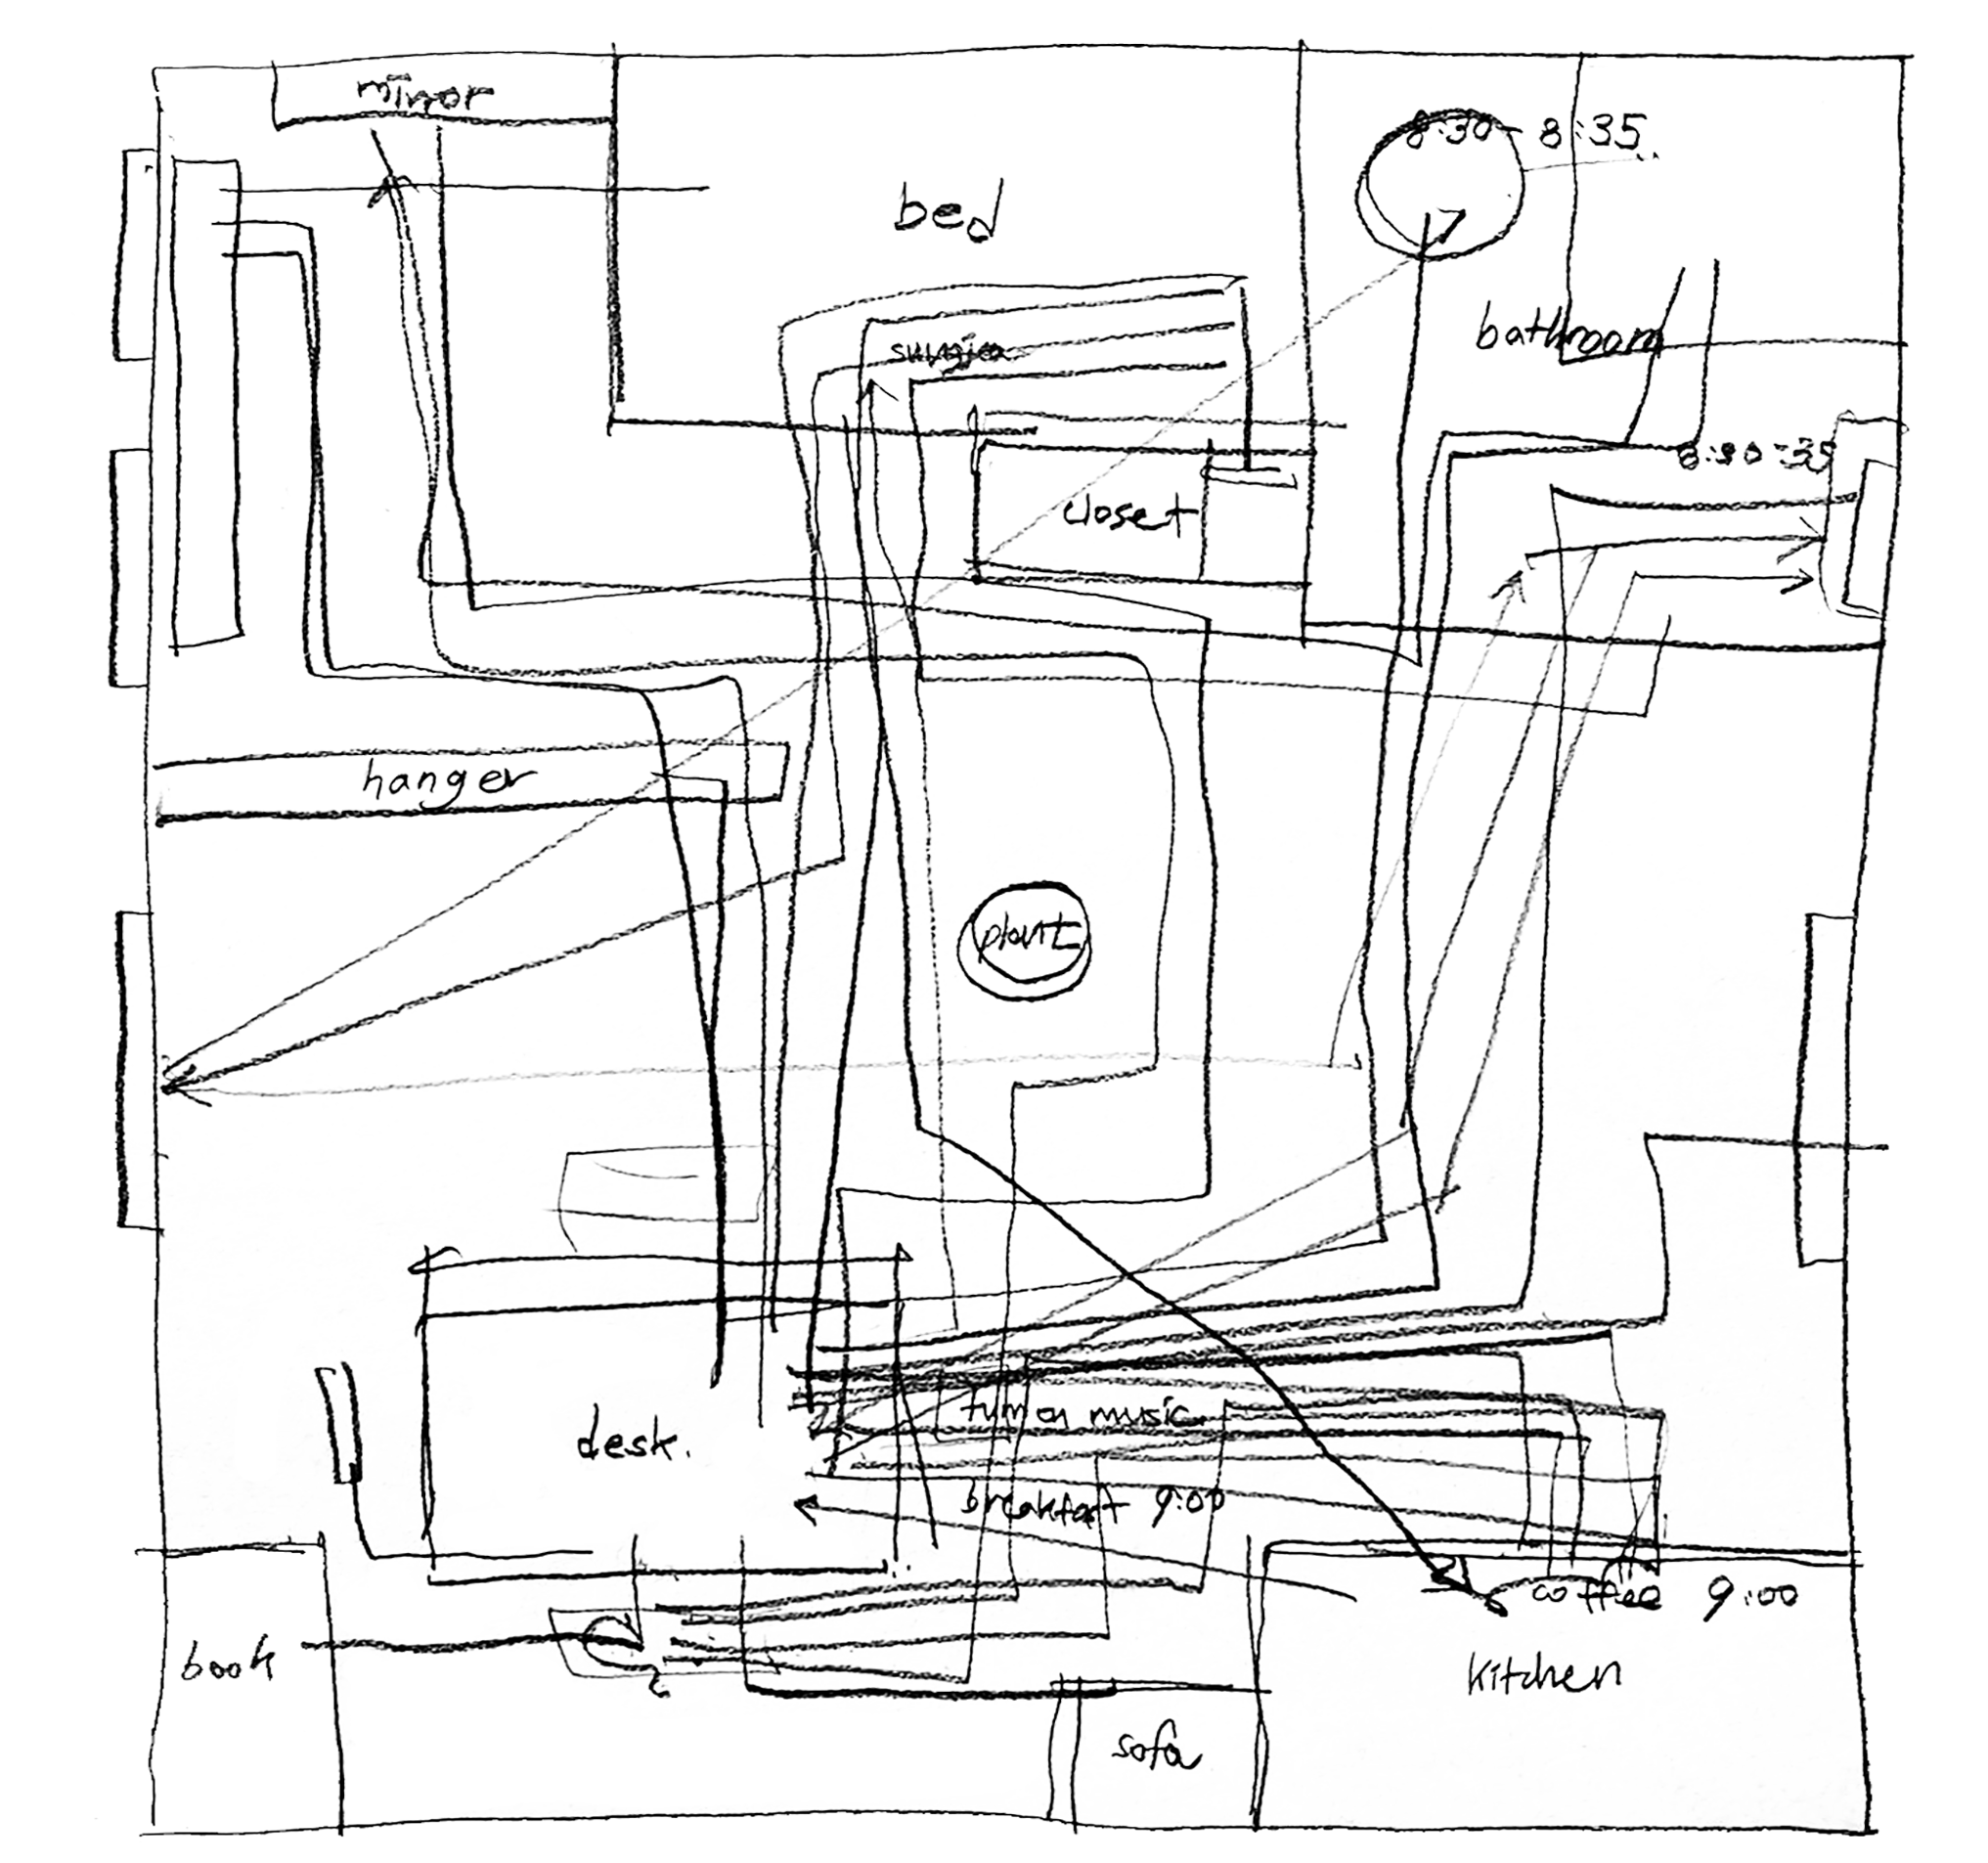 mirror
8:30- 8:35
bed
bathroom
8:30-35
closet
hanger
plant
turn on music
desk.
breakfast 9:00
coffee 9:00
book
kitchen
sofa